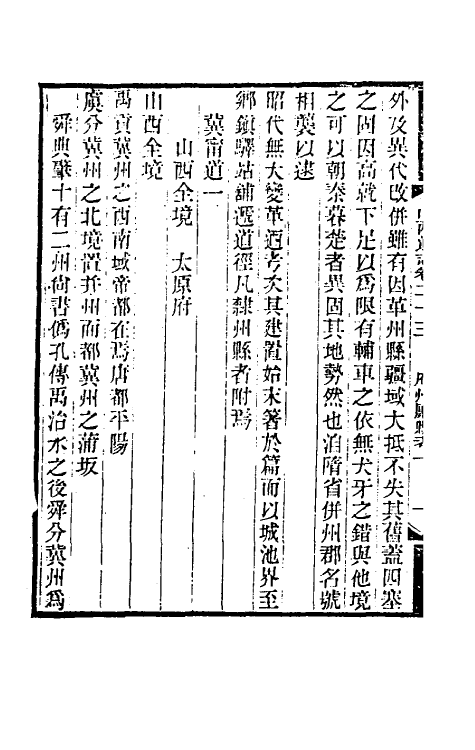 外及異代改併雖有因革州縣疆域大抵不失其舊蓋四塞
之固因高就下足以爲限有輔車之依無犬牙之錯與他境
之可以朝秦暮楚者異固其地勢然也洎隋省併州郡名號
相襲以逮
昭代無大變革迺考次其建置始末箸於篇而以城池界至
鄉鎮驛站舖遞道徑凡隸州縣者附焉
冀甯道一
山西全境　太原府
山西全境
禹貢冀州之西南域帝都在焉唐都平陽
虞分冀州之北境置并州而都冀州之蒲坂
舜典肇十有二州尙書僞孔傳禹治水之後舜分冀州爲